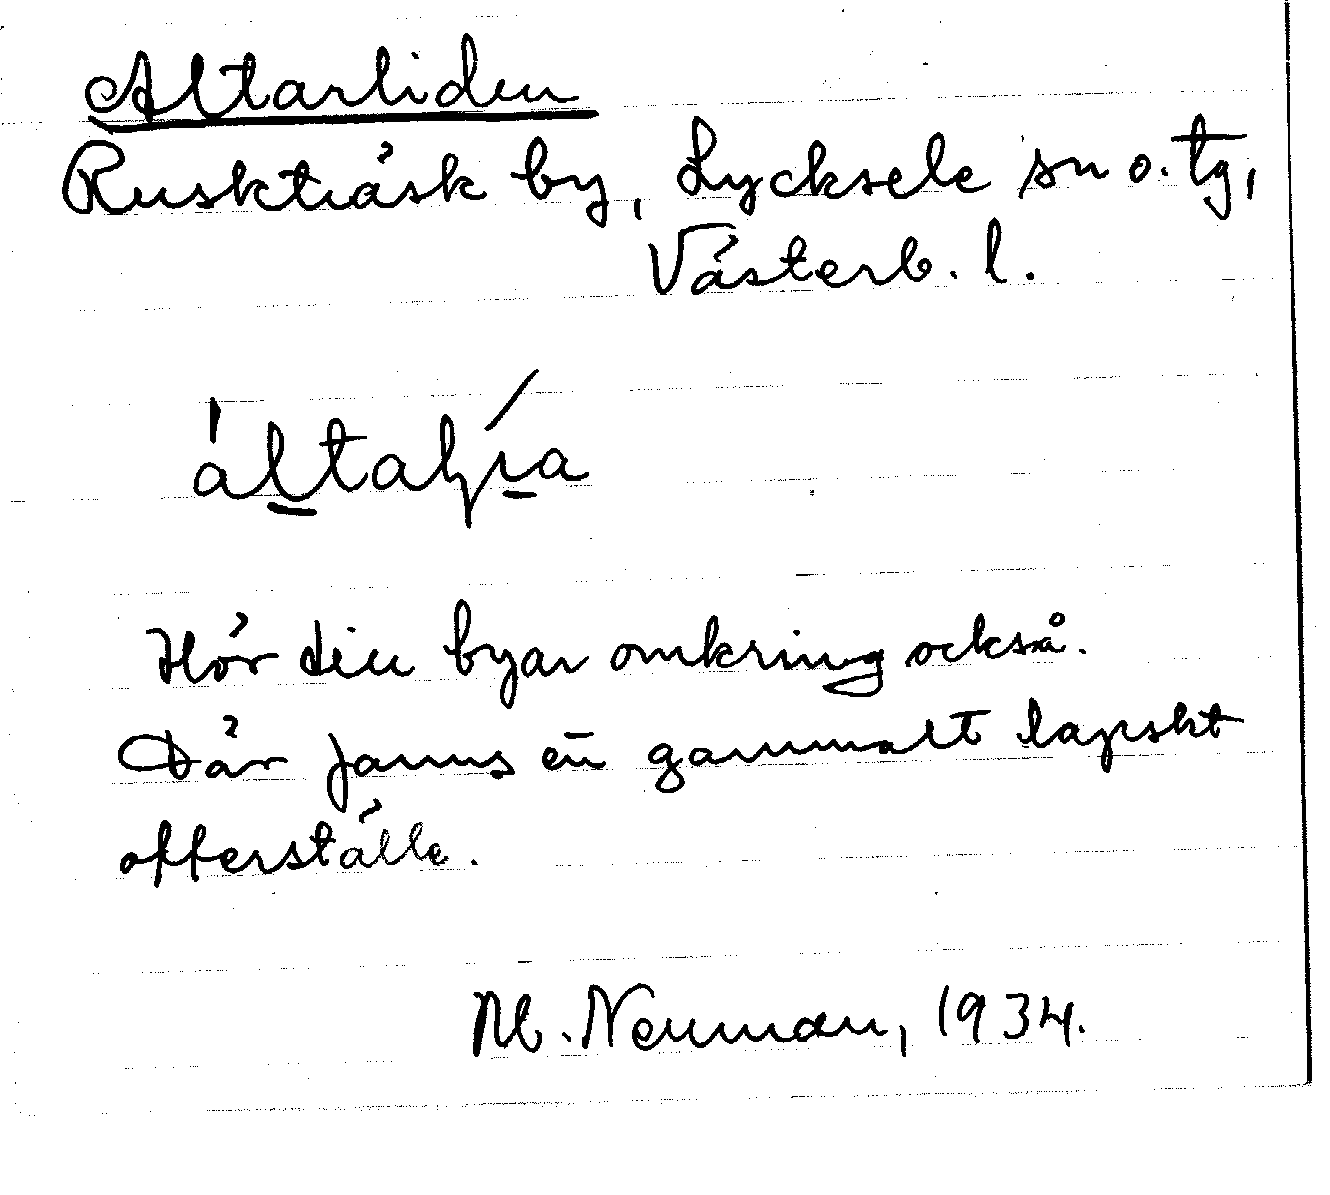 Altarliden
Ruskträsk by, Lycksele sn o. tg,
Västerb. l.
Hör den byar omkring också.
Där fanns en gammalt lapskt
offerställe.
M. Neuman, 1934.